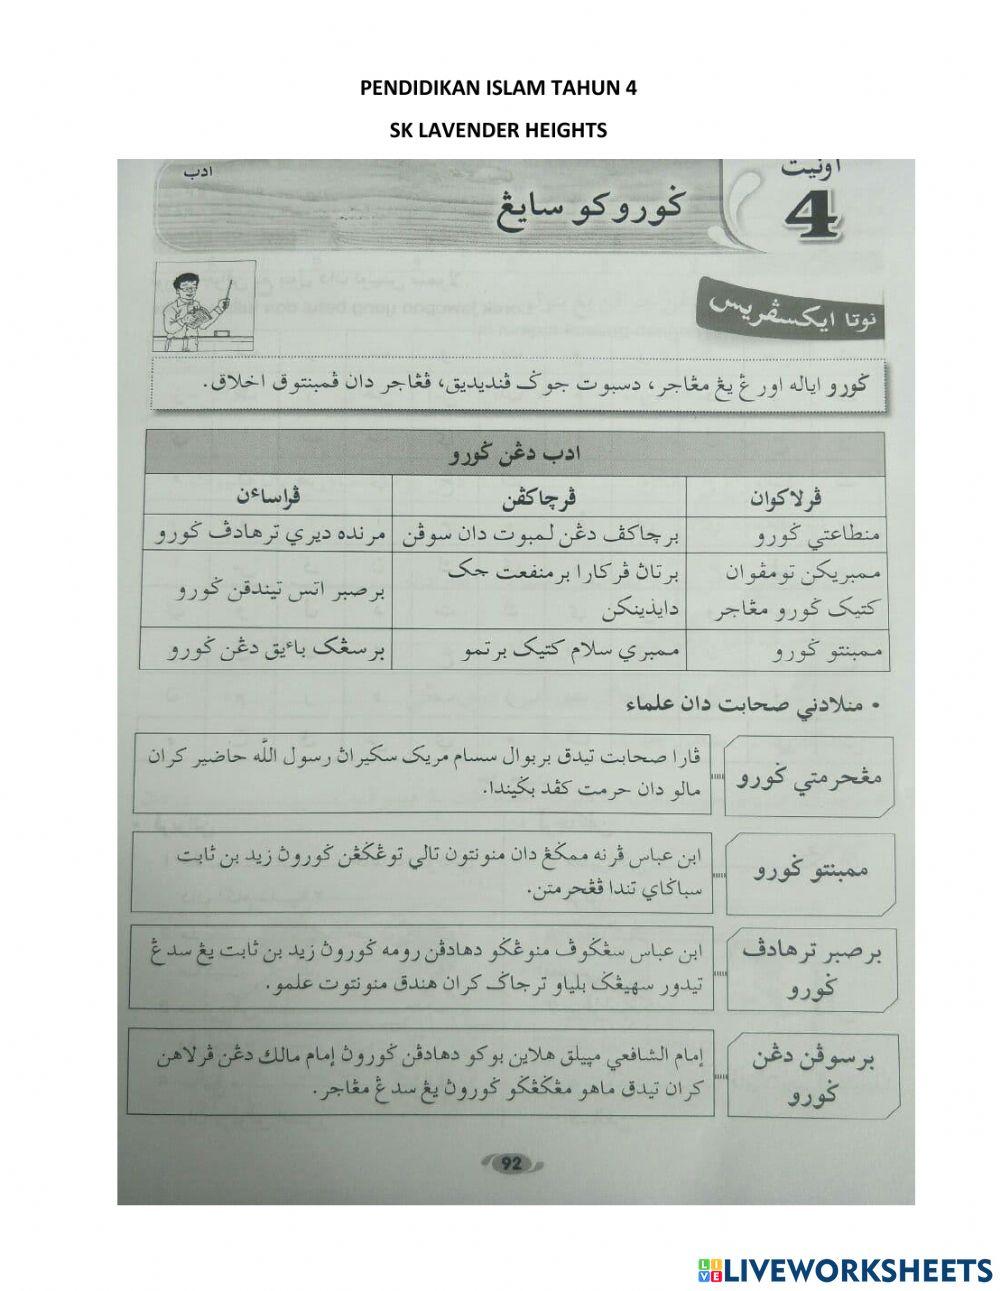 PENDIDIKAN ISLAM TAHUN 4
SK LAVENDER HEIGHTS
اونيت
4
ادب
ݢوروكو سايڠ
نوتا ايكسڤريس
ݢورو اياله اورڠ يڠ مڠاجر، دسبوت جوݢ ڤنديديق، ڤڠاجر دان ڤمبنتوق اخلاق.
ادب دڠن ݢورو
ڤرلاكوان
ڤرچاكڤن
ڤراساءن
منطاعتي ݢورو
برچاكڤ دڠن لمبوت دان سوڤن
مرنده ديري ترهادڤ ݢورو
ممبريكن تومڤوان
كتيک ݢورو مڠاجر
برتاڽ ڤركارا برمنفعت جک
دايذينكن
برصبر اتس تيندقن ݢورو
ممبنتو ݢورو
ممبري سلام كتيک برتمو
برسڠک باٴيق دڠن ݢورو
• منلادني صحابت دان علماء
مڠحرمتي ݢورو
ڤارا صحابت تيدق بربوال سسام مريک سكيراڽ رسول اللّه حاضير كران
مالو دان حرمت كڤد بݢيندا.
ممبنتو ݢورو
ابن عباس ڤرنه ممݢڠ دان منونتون تالي توڠݢڠن ݢوروڽ زيد بن ثابت
سباݢاي تندا ڤڠحرمتن.
برصبر ترهادڤ
ݢورو
ابن عباس سڠݢوڤ منوڠݢو دهادڤن رومه ݢوروڽ زيد بن ثابت يڠ سدڠ
تيدور سهيڠݢ بلياو ترجاݢ كران هندق منونتوت علمو.
برسوڤن دڠن
ݢورو
إمام الشافعي مڽيلق هلاين بوكو دهادڤن ݢوروڽ إمام مالك دڠن ڤرلاهن
كران تيدق ماهو مڠݢڠݢو ݢوروڽ يڠ سدڠ مڠاجر.
92
LIVEWORKSHEETS